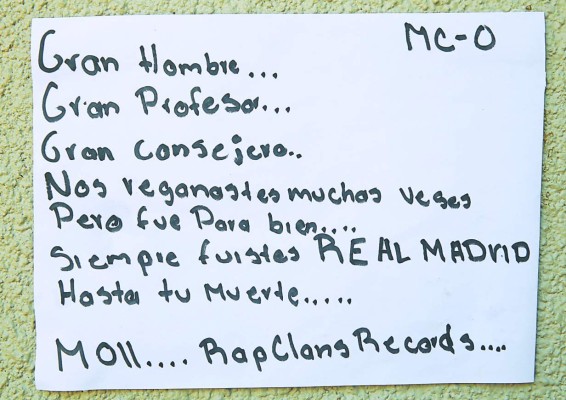 MC-O
Gran Hombre...
Gran Profesor...
Gran consejero..
Nos reganastes muchas veses
Pero fue Para bien....
Siempre fuistes REAL MADRID
Hasta tu Muerte.....
MOll.... RapClansRecords....